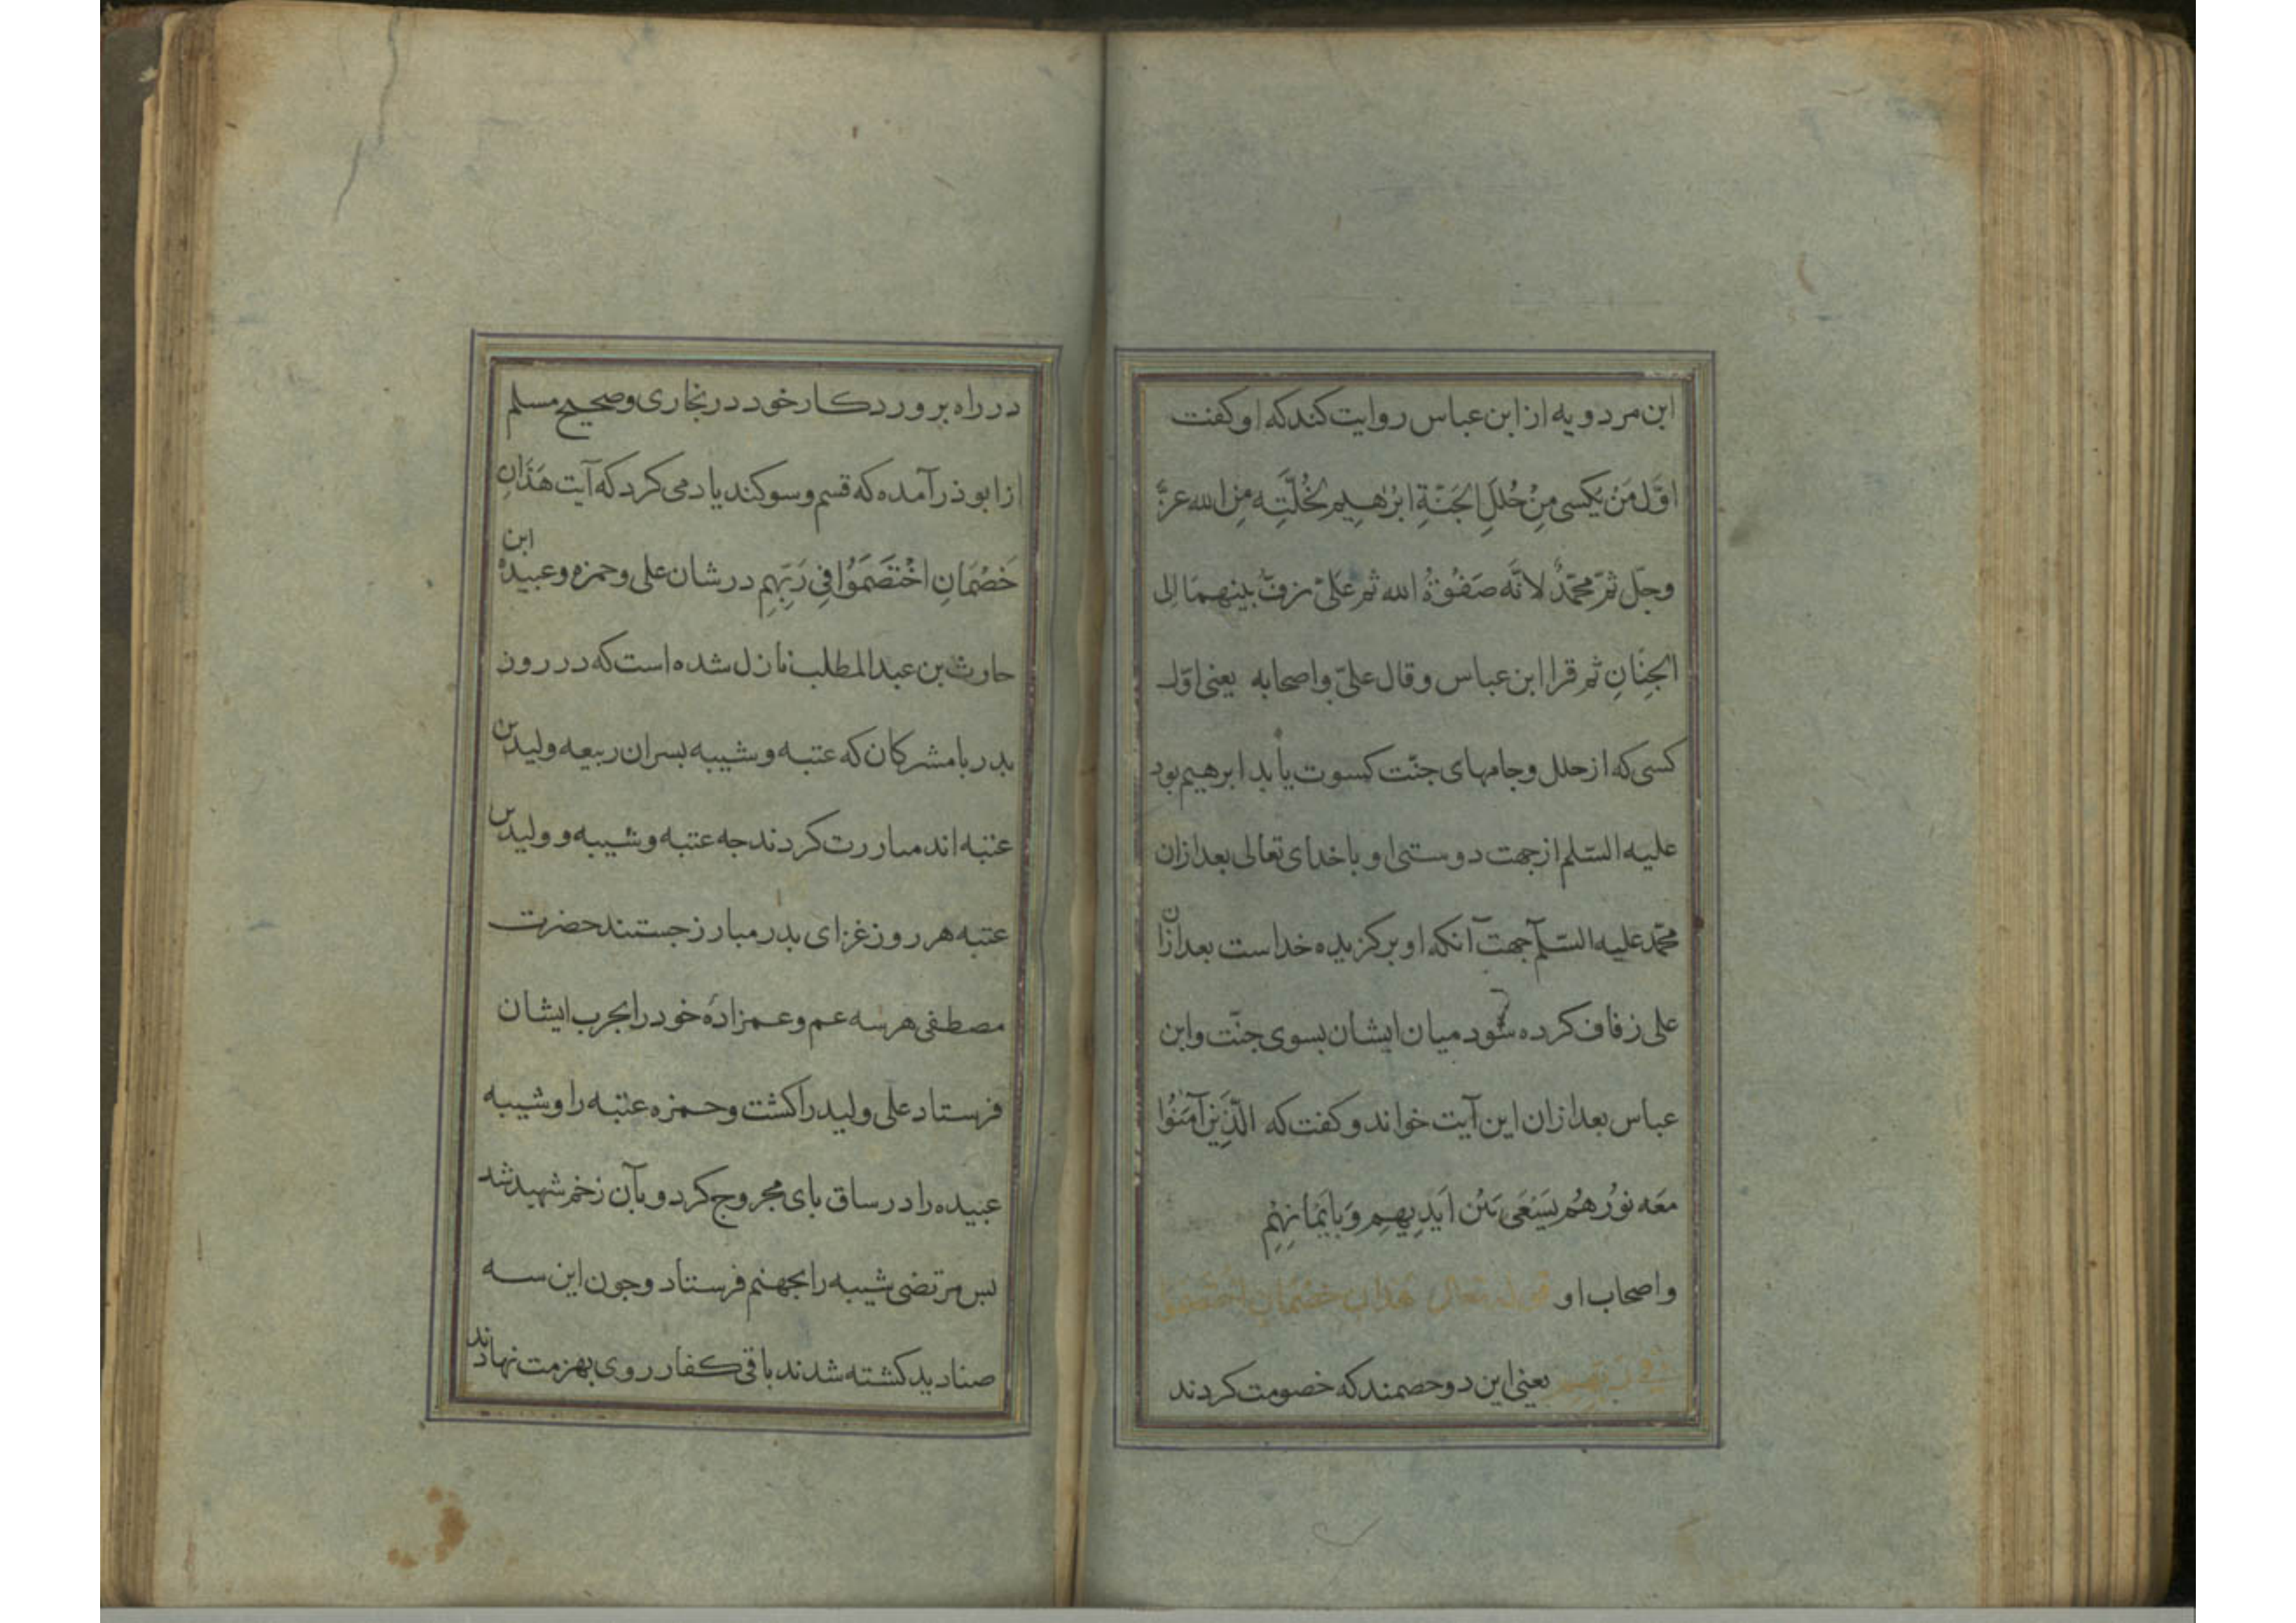 ابن مردویه از ابن عباس روایت کند که او کفت
اوّل مَنْ یکسی مِنْ حُلَلِ الجَنّةِ ابرٰهیم لخُلَّتِه مِن الله عزّ
وجلّ ثمّ محمّدٌ لانّه صَفْوَةُ الله ثم علیّ یزفّ بینهمَا الی
الجِنَانِ ثم قرا ابن عباس وقال علیّ واصحابه یعنی اوّل
کسی که از حلل وجامهای جنّت کسوت یابد ابرهیم بود
علیه السّلم از جهت دوستی او با خدای تعالی بعد ازان
محمّد علیه السّلم جهت آنکه او برکزیده خداست بعد ازان
علی زفاف کرده شود میان ایشان بسوی جنّت وابن
عباس بعد ازان این آیت خواند وکفت که الّذِینَ آمَنُوا
معَه نورُهُم یَسْعَی بَیْن اَیدِیهِم وَبِاَیْمَانِهِم
واصحاب او قوله تعالی هَذَانِ خَصْمَانِ اخْتَصَمُوا
فِی رَبِّهِم یعنی این دو خصمند که خصومت کردند
در راه بروردکار خود در بخاری وصحیح مسلم
از ابوذر آمده که قسم وسوکند یاد می کرد که آیت هَذَانِ
خَصْمَانِ اخْتَصَمُوا فِی رَبِّهِم در شان علی وحمزه وعبیدهٔ ابن
حارث بن عبدالمطلب نازل شده است که در روز
بدر با مشرکان که عتبه وشیبه بسران ربیعه ولید بن
عتبه اند مبارزت کردند جه عتبه وشیبه و ولید بن
عتبه هر روز غزای بدر مبارز جستند حضرت
مصطفی هر سه عم وعمزادهٔ خود را بحرب ایشان
فرستاد علی ولید را کشت وحمزه عتبه را وشیبه
عبیده را در ساق بای مجروح کرد و بآن زخم شهید شد
بس مرتضی شیبه را بجهنم فرستاد وجون این سه
صنادید کشته شدند باقی کفار روی بهزمت نهادند